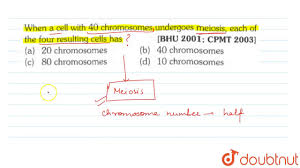 When a cell with 40 chromosomes, undergoes meiosis, each of
the four resulting cells has ?
[BHU 2001; CPMT 2003]
(a) 20 chromosomes (b) 40 chromosomes
(c) 80 chromosomes (d) 10 chromosomes
Meiosis
chromosome number → half
doubtnut